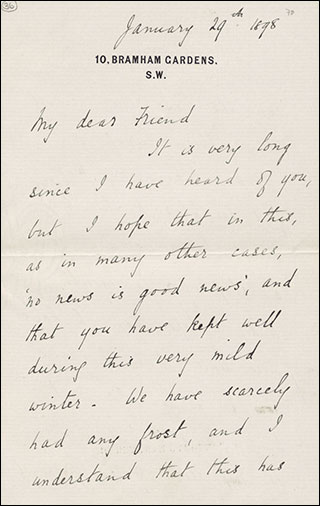 36
January 29th 1898
70
10, BRAMHAM GARDENS,
S.W.
My dear Friend
It is very long
since I have heard of you,
but I hope that in this,
as in many other cases,
'no news is good news', and
that you have kept well
during this very mild
winter. We have scarcely
had any frost, and I
understand that this has